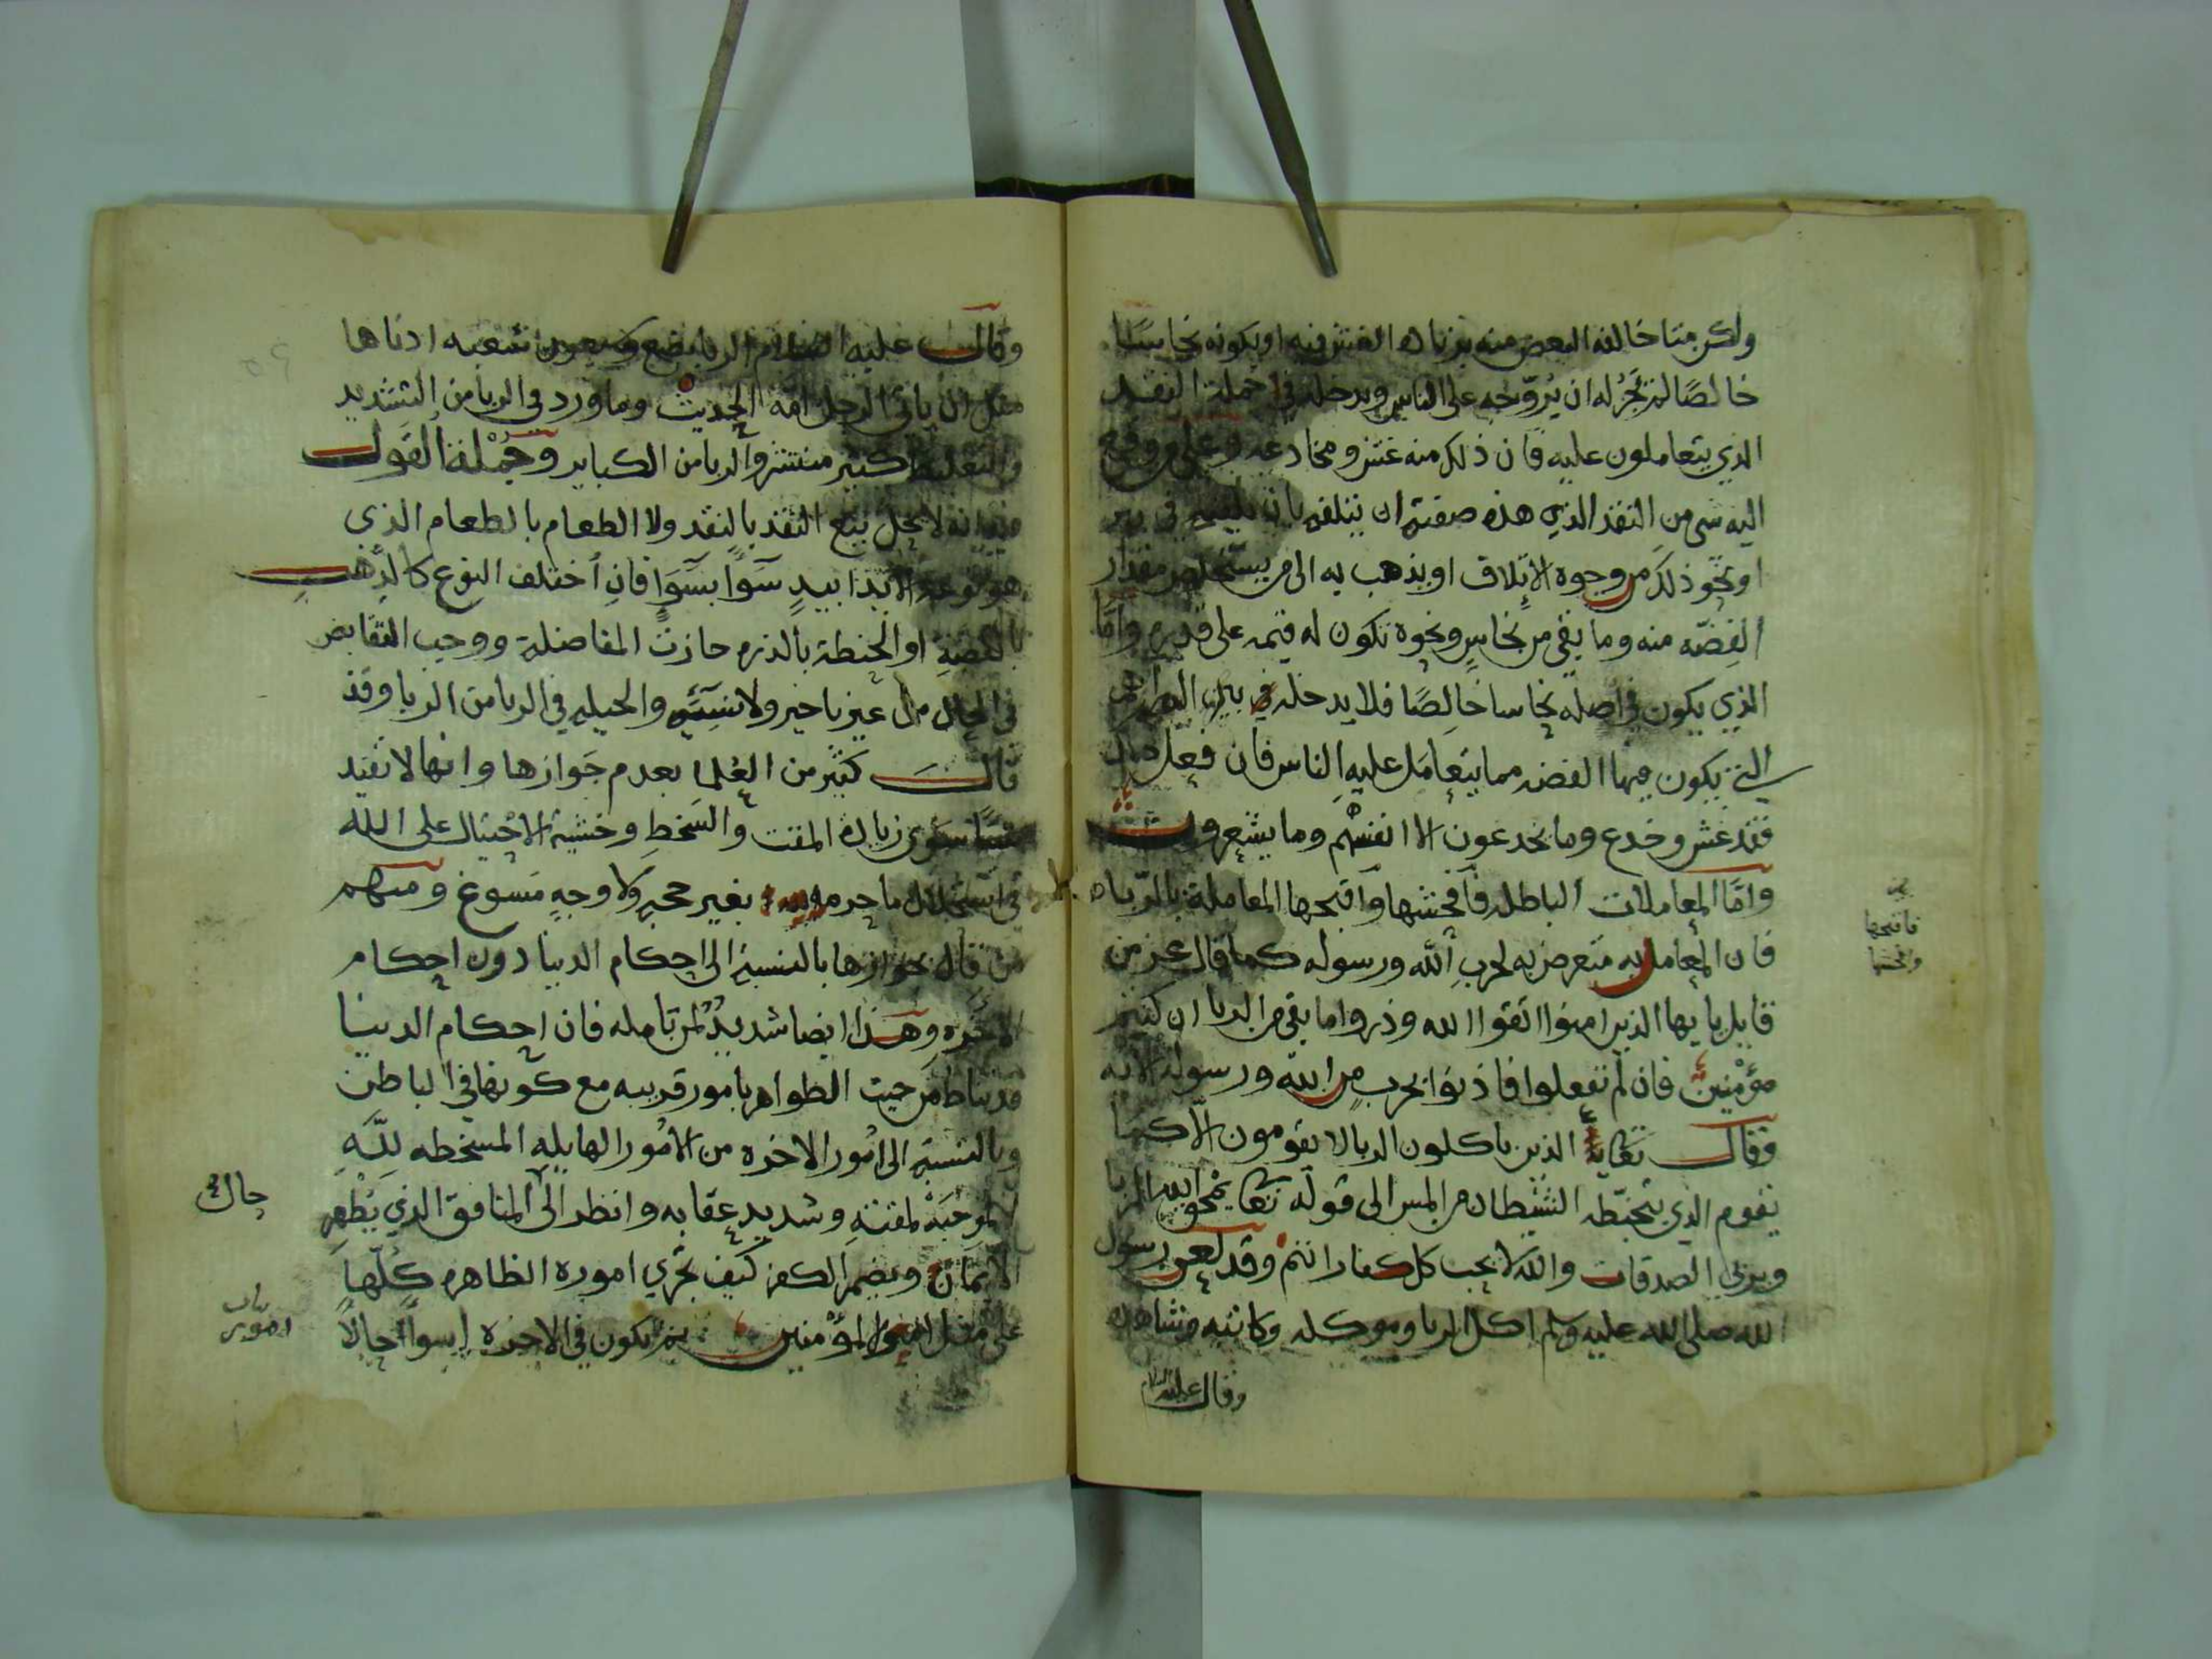 ولكن متا خالفه البعض منه بزيادة الغش فيه او بكونه نحاسا
خالصا لم يجز له ان يروجه على الناس ويدخله في جملة النقد
الذي يتعاملون عليه فان ذلك منه غش ومخادعه وعلى من وقع
اليه شي من النقد الذي هذه صفته ان يتلفه بان يلقيه في بير
او نحو ذلك من وجوه الاتلاف او يذهب به الى من يستخلص مقدار
الفضه منه وما بقي من نحاس ونحوه تكون له قيمه على قدره واما
الذي يكون في اصله نحاسا خالصا فلا يدخله في بين
التي يكون فيها الفضه مما يتعامل عليه الناس فان فعل ذلك
فقد غش وخدع وما يخدعون الا انفسهم وما يشعرون
واما المعاملات الباطله فافحشها واقبحها المعاملة بالرباه
فان المعامل به متعرض به لحرب الله ورسوله كما قال عز من
قايل يا يها الذين امنوا اتقوا الله وذروا ما بقي من الربا ان كنتم
مؤمنين فان لم تفعلوا فاذنوا بحرب من الله ورسوله الايه
وقال تعالى الذين ياكلون الربا لا يقومون الا كما
يقوم الذي يتخبطه الشيطان من المس الى قوله تعا يمحق الله الربا
ويربي الصدقات والله لا يحب كل كفار اثيم وقد لعن رسول
الله صلى الله عليه وسلم اكل الربا وموكله وكاتبه وشاهده
وقال عليه السلام
فاقبحها
وافحشها
وقال عليه السلام الربا بضع وسبعون شعبه ادناها
مثل ان ياتي الرجل امه الحديث وما ورد في الربا من التشديد
والتغليظ كثير منتشر والربا من الكباير وجملة القول
فيه انه لا يحل بيع النقد بالنقد ولا الطعام بالطعام الذي
هو نوعه الا يدا بيد سوا بسوا فان اختلف النوع كالذهب
بالفضة او الحنطة بالذره جازت المفاضلة ووجب التقابض
في الحال من غير تاخير ولا نسيئه والحيله في الربا من الربا وقد
قال كثير من العلما بعدم جوازها وانها لا تفيد
شيا سوى زيادة المقت والسخط وخشية الاحتيال على الله
في استحلال ما حرمه بغير حجه ولا وجه مسوغ ومنهم
من قال بجوازها بالنسبة الى احكام الدنيا دون احكام
الاخره وهذا ايضا شديد لمن تامله فان احكام الدنيا
قد تناط من حيث الظواهر بامور قريبه مع كونها في الباطن
وبالنسبة الى امور الاخره من الامور الهايله المسخطه لله
الموجبة لمقته وشديد عقابه وانظر الى المنافق الذي يظهر
الايمان ويضمر الكفر كيف تجري اموره الظاهره كلها
على مثل امور المؤمنين ثم يكون في الاخره اسوا حالا
حال
بيان
امور